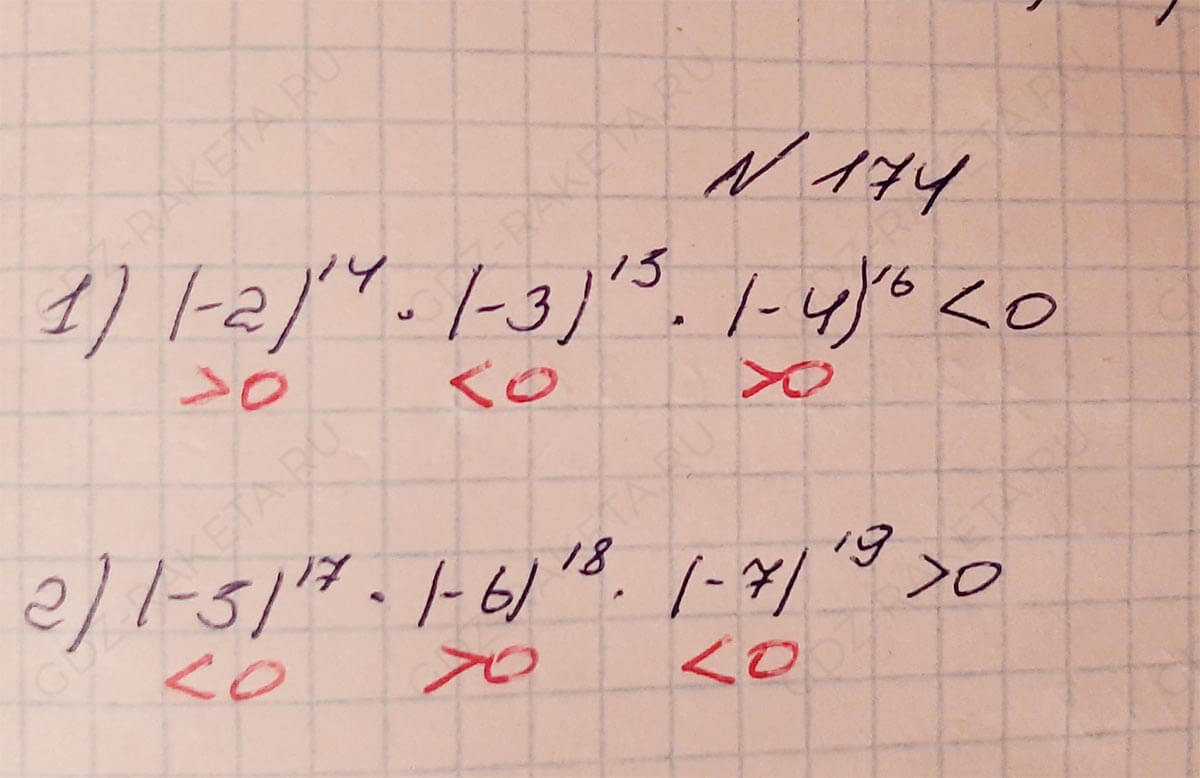 N 174
1) (-2)¹⁴ · (-3)¹⁵ · (-4)¹⁶ < 0
>0 <0 >0
2) (-5)¹⁷ · (-6)¹⁸ · (-7)¹⁹ > 0
<0 >0 <0
GDZ-RAKETA.RU